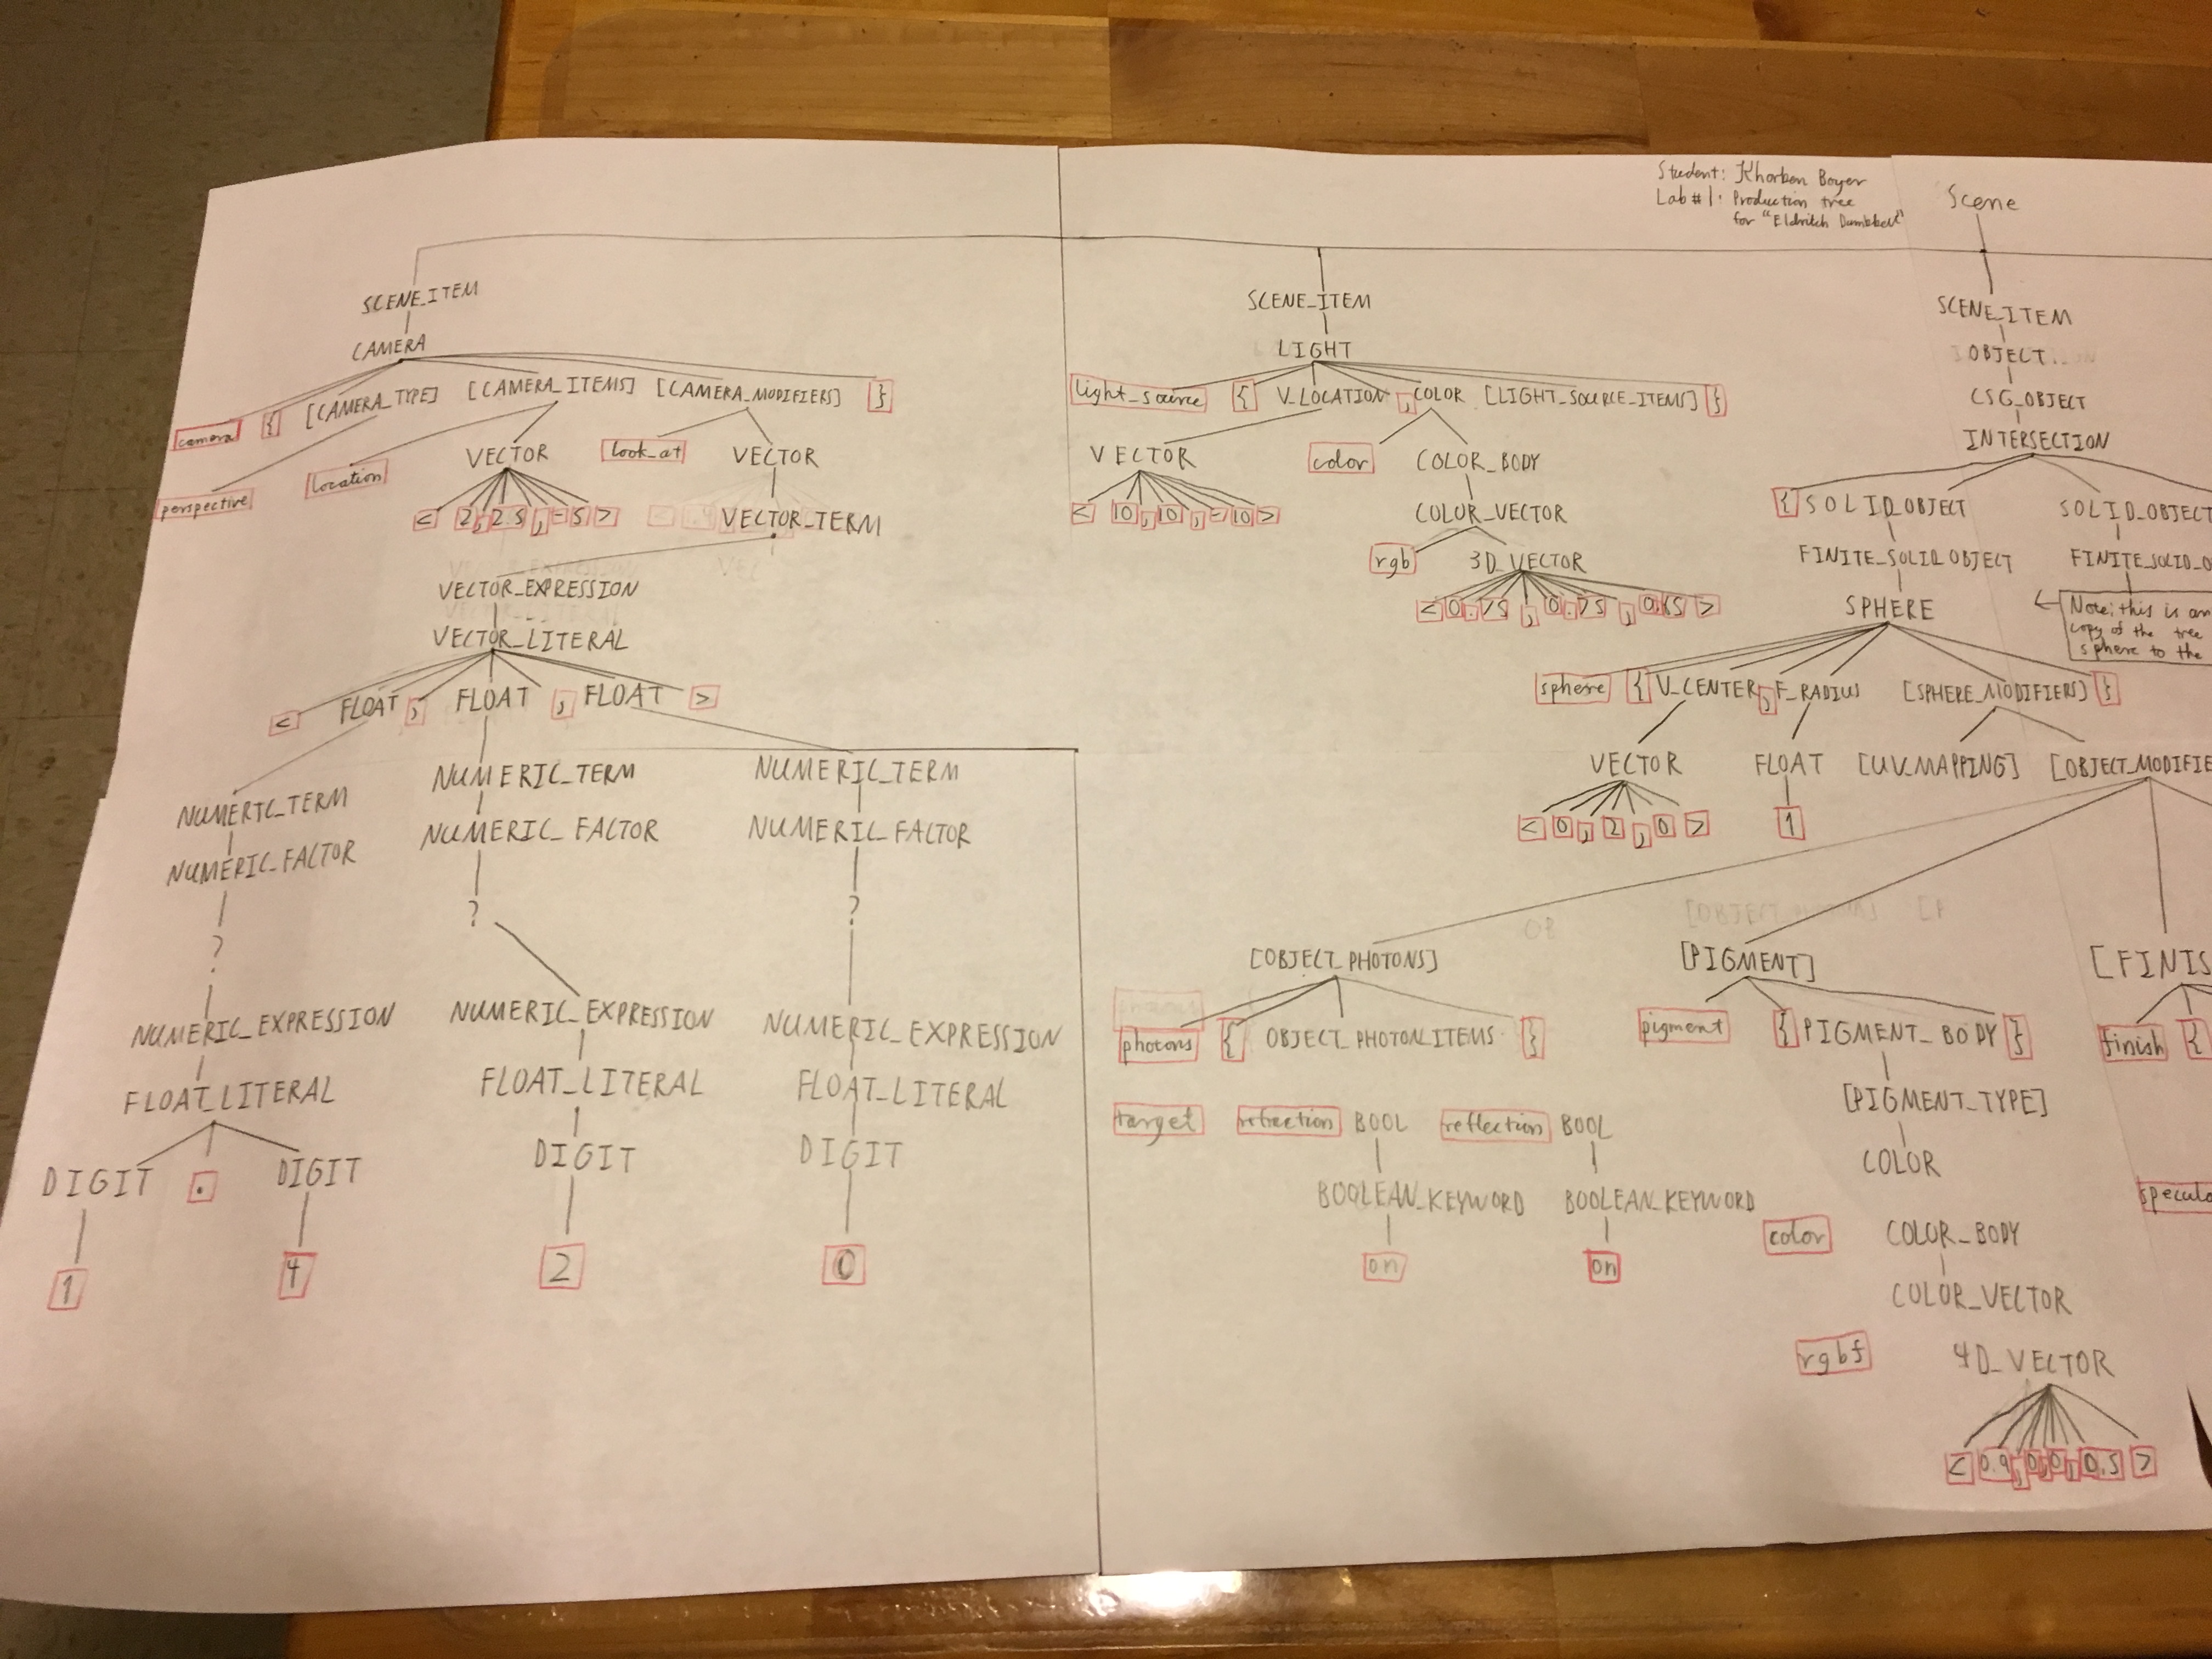 Student: Khorben Boyer
Lab #1: Production tree
for "Eldritch Dumbbell"
Scene
SCENE_ITEM
CAMERA
camera { [CAMERA_TYPE] [CAMERA_ITEMS] [CAMERA_MODIFIERS] }
perspective location VECTOR look_at VECTOR
< 2 , 2.5 , -5 > VECTOR_TERM
VECTOR_EXPRESSION
VECTOR_LITERAL
< FLOAT , FLOAT , FLOAT >
NUMERIC_TERM NUMERIC_TERM NUMERIC_TERM
NUMERIC_FACTOR NUMERIC_FACTOR NUMERIC_FACTOR
? ? ?
NUMERIC_EXPRESSION NUMERIC_EXPRESSION NUMERIC_EXPRESSION
FLOAT_LITERAL FLOAT_LITERAL FLOAT_LITERAL
DIGIT . DIGIT DIGIT DIGIT
1 4 2 0
SCENE_ITEM
LIGHT
light_source { V_LOCATION , COLOR [LIGHT_SOURCE_ITEMS] }
VECTOR color COLOR_BODY
< 10 , 10 , -10 > COLOR_VECTOR
rgb 3D_VECTOR
< 0.75 , 0.75 , 0.65 >
SCENE_ITEM
OBJECT
CSG_OBJECT
INTERSECTION
{ SOLID_OBJECT SOLID_OBJECT
FINITE_SOLID_OBJECT FINITE_SOLID_O
SPHERE
Note: this is an
copy of the tree
sphere to the
sphere { V_CENTER , F_RADIUS [SPHERE_MODIFIERS] }
VECTOR FLOAT [UV_MAPPING] [OBJECT_MODIFIE
< 0 , 2 , 0 > 1
[OBJECT_PHOTONS] [PIGMENT] [FINIS
photons { OBJECT_PHOTON_ITEMS } pigment { PIGMENT_BODY } finish {
target refraction BOOL reflection BOOL [PIGMENT_TYPE]
COLOR
BOOLEAN_KEYWORD BOOLEAN_KEYWORD specula
on on color COLOR_BODY
COLOR_VECTOR
rgbf 4D_VECTOR
< 0.9 , 0 , 0 , 0.5 >